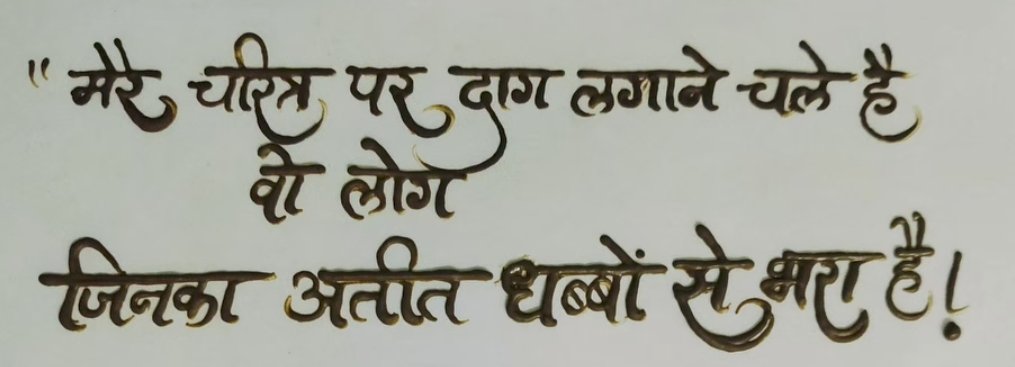 " मेरे चरित्र पर दाग लगाने चले है
वो लोग
जिनका अतीत धब्बों से भरा है!